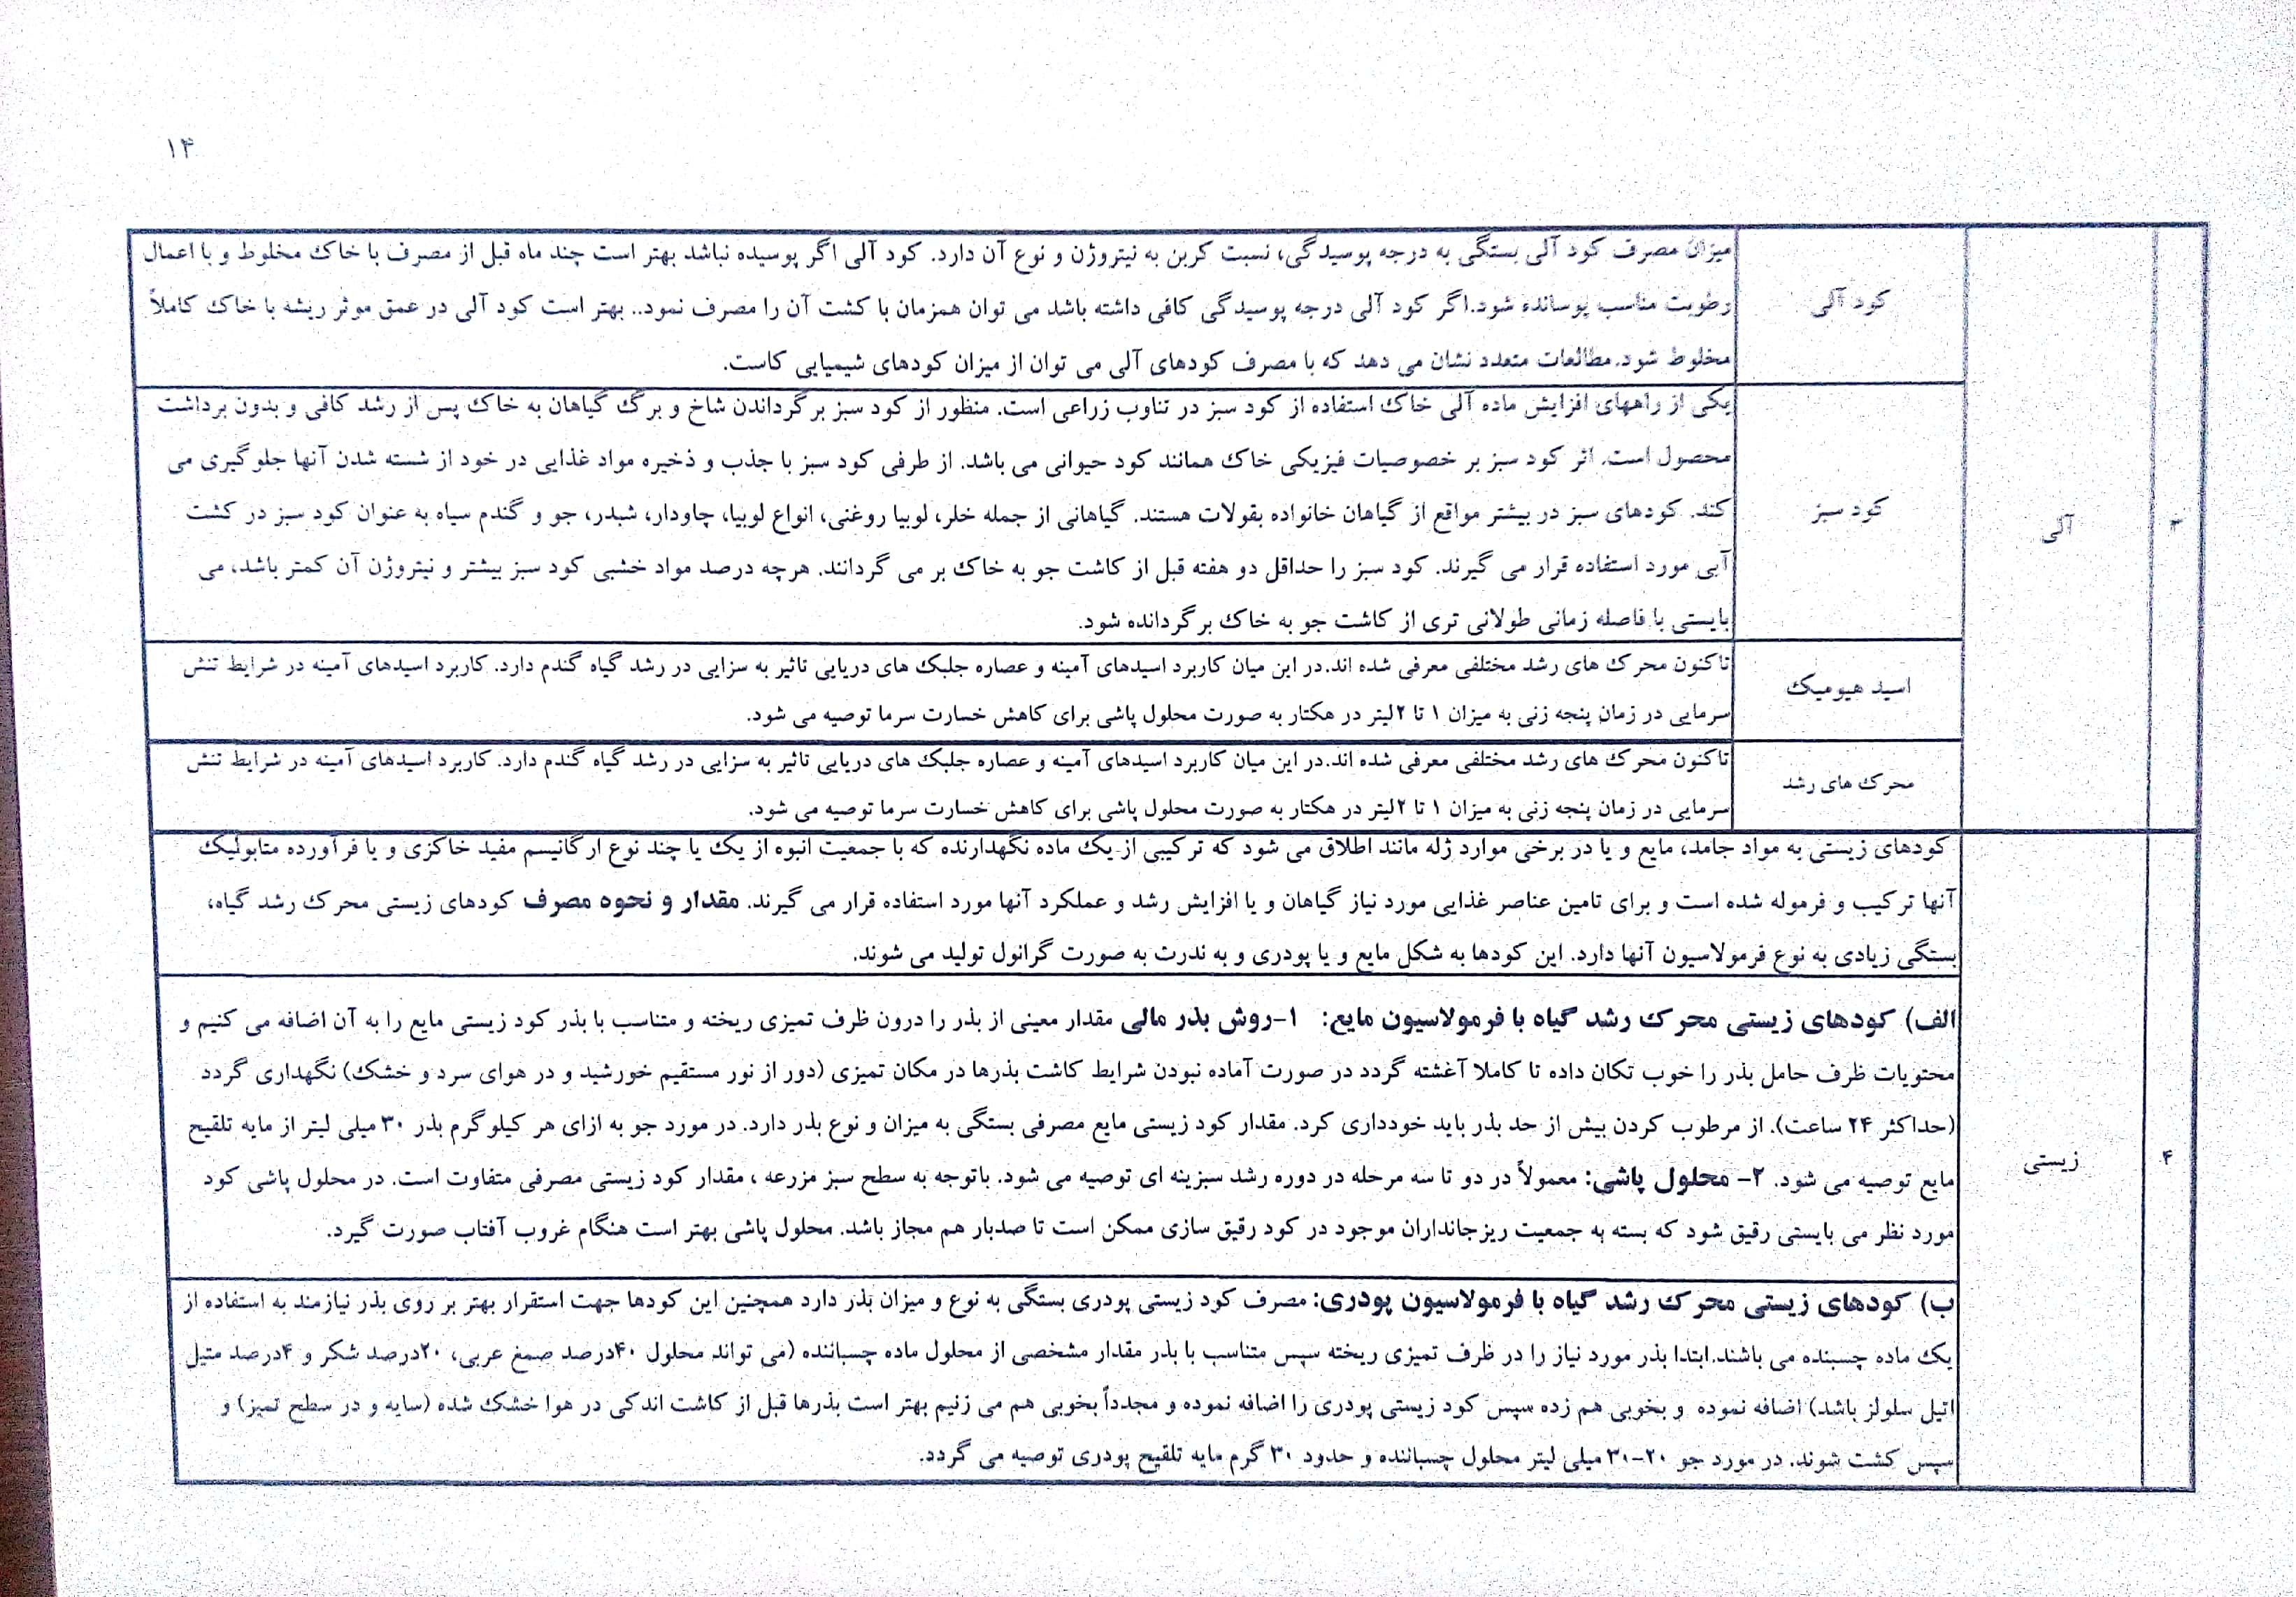 ۱۴
میزان مصرف کود آلی بستگی به درجه پوسیدگی، نسبت کربن به نیتروژن و نوع آن دارد. کود آلی اگر پوسیده نباشد بهتر است چند ماه قبل از مصرف با خاک مخلوط و با اعمال
رطوبت مناسب پوسانده شود.اگر کود آلی درجه پوسیدگی کافی داشته باشد می توان همزمان با کشت آن را مصرف نمود.. بهتر است کود آلی در عمق موثر ریشه با خاک کاملاً
مخلوط شود.مطالعات متعدد نشان می دهد که با مصرف کودهای آلی می توان از میزان کودهای شیمیایی کاست.
کود آلی
یکی از راههای افزایش ماده آلی خاک استفاده از کود سبز در تناوب زراعی است. منظور از کود سبز برگرداندن شاخ و برگ گیاهان به خاک پس از رشد کافی و بدون برداشت
محصول است. اثر کود سبز بر خصوصیات فیزیکی خاک همانند کود حیوانی می باشد. از طرفی کود سبز با جذب و ذخیره مواد غذایی در خود از شسته شدن آنها جلوگیری می
کند. کودهای سبز در بیشتر مواقع از گیاهان خانواده بقولات هستند. گیاهانی از جمله خلر، لوبیا روغنی، انواع لوبیا، چاودار، شبدر، جو و گندم سیاه به عنوان کود سبز در کشت
آبی مورد استفاده قرار می گیرند. کود سبز را حداقل دو هفته قبل از کاشت جو به خاک بر می گردانند. هرچه درصد مواد خشبی کود سبز بیشتر و نیتروژن آن کمتر باشد، می
بایستی با فاصله زمانی طولانی تری از کاشت جو به خاک برگردانده شود.
کود سبز
آلی
۳
تاکنون محرک های رشد مختلفی معرفی شده اند.در این میان کاربرد اسیدهای آمینه و عصاره جلبک های دریایی تاثیر به سزایی در رشد گیاه گندم دارد. کاربرد اسیدهای آمینه در شرایط تنش
سرمایی در زمان پنجه زنی به میزان ۱ تا ۲لیتر در هکتار به صورت محلول پاشی برای کاهش خسارت سرما توصیه می شود.
اسید هیومیک
تاکنون محرک های رشد مختلفی معرفی شده اند.در این میان کاربرد اسیدهای آمینه و عصاره جلبک های دریایی تاثیر به سزایی در رشد گیاه گندم دارد. کاربرد اسیدهای آمینه در شرایط تنش
سرمایی در زمان پنجه زنی به میزان ۱ تا ۲لیتر در هکتار به صورت محلول پاشی برای کاهش خسارت سرما توصیه می شود.
محرک های رشد
کودهای زیستی به مواد جامد، مایع و یا در برخی موارد ژله مانند اطلاق می شود که ترکیبی از یک ماده نگهدارنده که با جمعیت انبوه از یک یا چند نوع ارگانیسم مفید خاکزی و یا فرآورده متابولیک
آنها ترکیب و فرموله شده است و برای تامین عناصر غذایی مورد نیاز گیاهان و یا افزایش رشد و عملکرد آنها مورد استفاده قرار می گیرند. مقدار و نحوه مصرف کودهای زیستی محرک رشد گیاه،
بستگی زیادی به نوع فرمولاسیون آنها دارد. این کودها به شکل مایع و یا پودری و به ندرت به صورت گرانول تولید می شوند.
الف) کودهای زیستی محرک رشد گیاه با فرمولاسیون مایع: ۱-روش بذر مالی مقدار معینی از بذر را درون ظرف تمیزی ریخته و متناسب با بذر کود زیستی مایع را به آن اضافه می کنیم و
محتویات ظرف حامل بذر را خوب تکان داده تا کاملا آغشته گردد در صورت آماده نبودن شرایط کاشت بذرها در مکان تمیزی (دور از نور مستقیم خورشید و در هوای سرد و خشک) نگهداری گردد
(حداکثر ۲۴ ساعت). از مرطوب کردن بیش از حد بذر باید خودداری کرد. مقدار کود زیستی مایع مصرفی بستگی به میزان و نوع بذر دارد. در مورد جو به ازای هر کیلوگرم بذر ۳۰ میلی لیتر از مایه تلقیح
مایع توصیه می شود. ۲- محلول پاشی: معمولاً در دو تا سه مرحله در دوره رشد سبزینه ای توصیه می شود. باتوجه به سطح سبز مزرعه ، مقدار کود زیستی مصرفی متفاوت است. در محلول پاشی کود
مورد نظر می بایستی رقیق شود که بسته به جمعیت ریزجانداران موجود در کود رقیق سازی ممکن است تا صدبار هم مجاز باشد. محلول پاشی بهتر است هنگام غروب آفتاب صورت گیرد.
زیستی
۴
ب) کودهای زیستی محرک رشد گیاه با فرمولاسیون پودری: مصرف کود زیستی پودری بستگی به نوع و میزان بذر دارد همچنین این کودها جهت استقرار بهتر بر روی بذر نیازمند به استفاده از
یک ماده چسبنده می باشند.ابتدا بذر مورد نیاز را در ظرف تمیزی ریخته سپس متناسب با بذر مقدار مشخصی از محلول ماده چسباننده (می تواند محلول ۴۰درصد صمغ عربی، ۲۰درصد شکر و ۴درصد متیل
اتیل سلولز باشد) اضافه نموده و بخوبی هم زده سپس کود زیستی پودری را اضافه نموده و مجدداً بخوبی هم می زنیم بهتر است بذرها قبل از کاشت اندکی در هوا خشک شده (سایه و در سطح تمیز) و
سپس کشت شوند. در مورد جو ۲۰-۳۰ میلی لیتر محلول چسباننده و حدود ۳۰ گرم مایه تلقیح پودری توصیه می گردد.